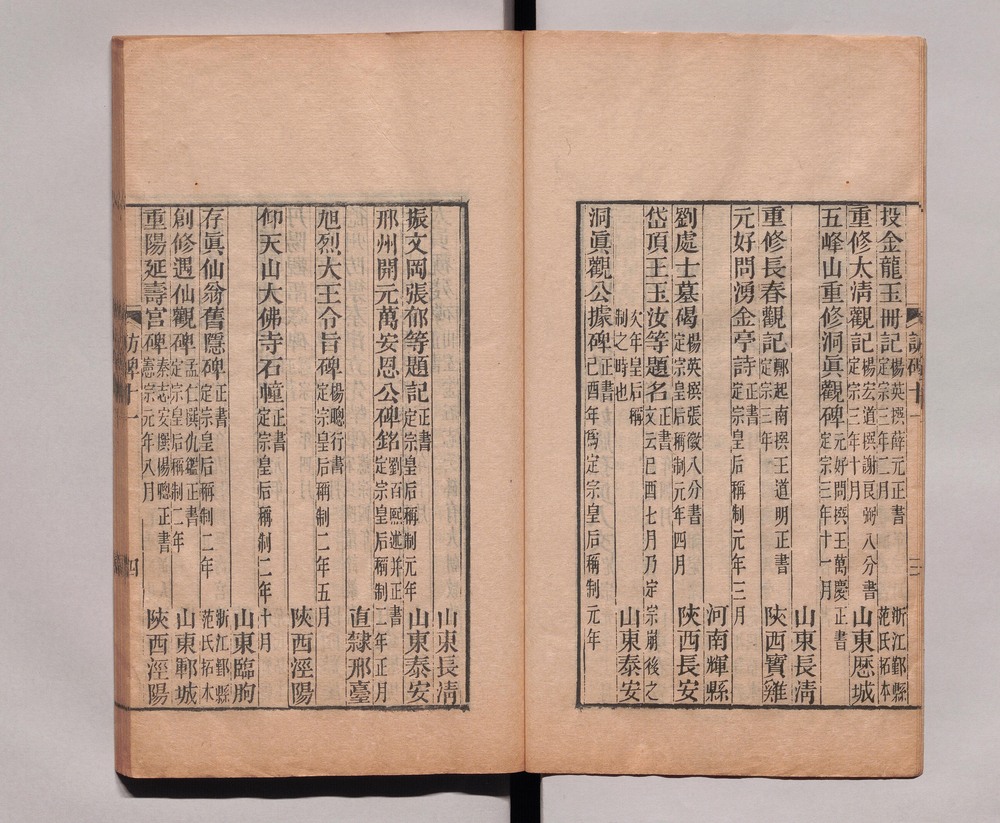 投金龍玉冊記楊英撰薛元正書定宗三年二月浙江鄞縣范氏拓本
重修太淸觀記楊宏道撰謝良弼八分書定宗三年十月山東歷城
五峰山重修洞眞觀碑元好問撰王萬慶正書定宗三年十一月
山東長淸
重修長春觀記鄭起南撰王道明正書定宗三年陝西寶雞
元好問湧金亭詩正書定宗皇后稱制元年三月
河南輝縣
劉處士墓碣楊英撰張徽八分書定宗皇后稱制元年四月陝西長安
岱頂王玉汝等題名正書文云己酉七月乃定宗崩後之
次年皇后稱制之時也山東泰安
洞眞觀公據碑正書己酉年爲定宗皇后稱制元年
山東長淸
振文岡張郁等題記正書定宗皇后稱制元年山東泰安
邢州開元萬安恩公碑銘劉百熙述并正書定宗皇后稱制二年正月
直隸邢臺
旭烈大王令旨碑楊聰行書定宗皇后稱制二年五月
陝西涇陽
仰天山大佛寺石幢正書定宗皇后稱制二年十月
山東臨朐
存眞仙翁舊隱碑正書定宗皇后稱制二年浙江鄞縣范氏拓本
創修遇仙觀碑孟仁撰仇繼正書定宗皇后稱制二年山東鄆城
重陽延壽宮碑秦志安撰楊聰正書憲宗元年八月陝西涇陽
訪碑十一
四